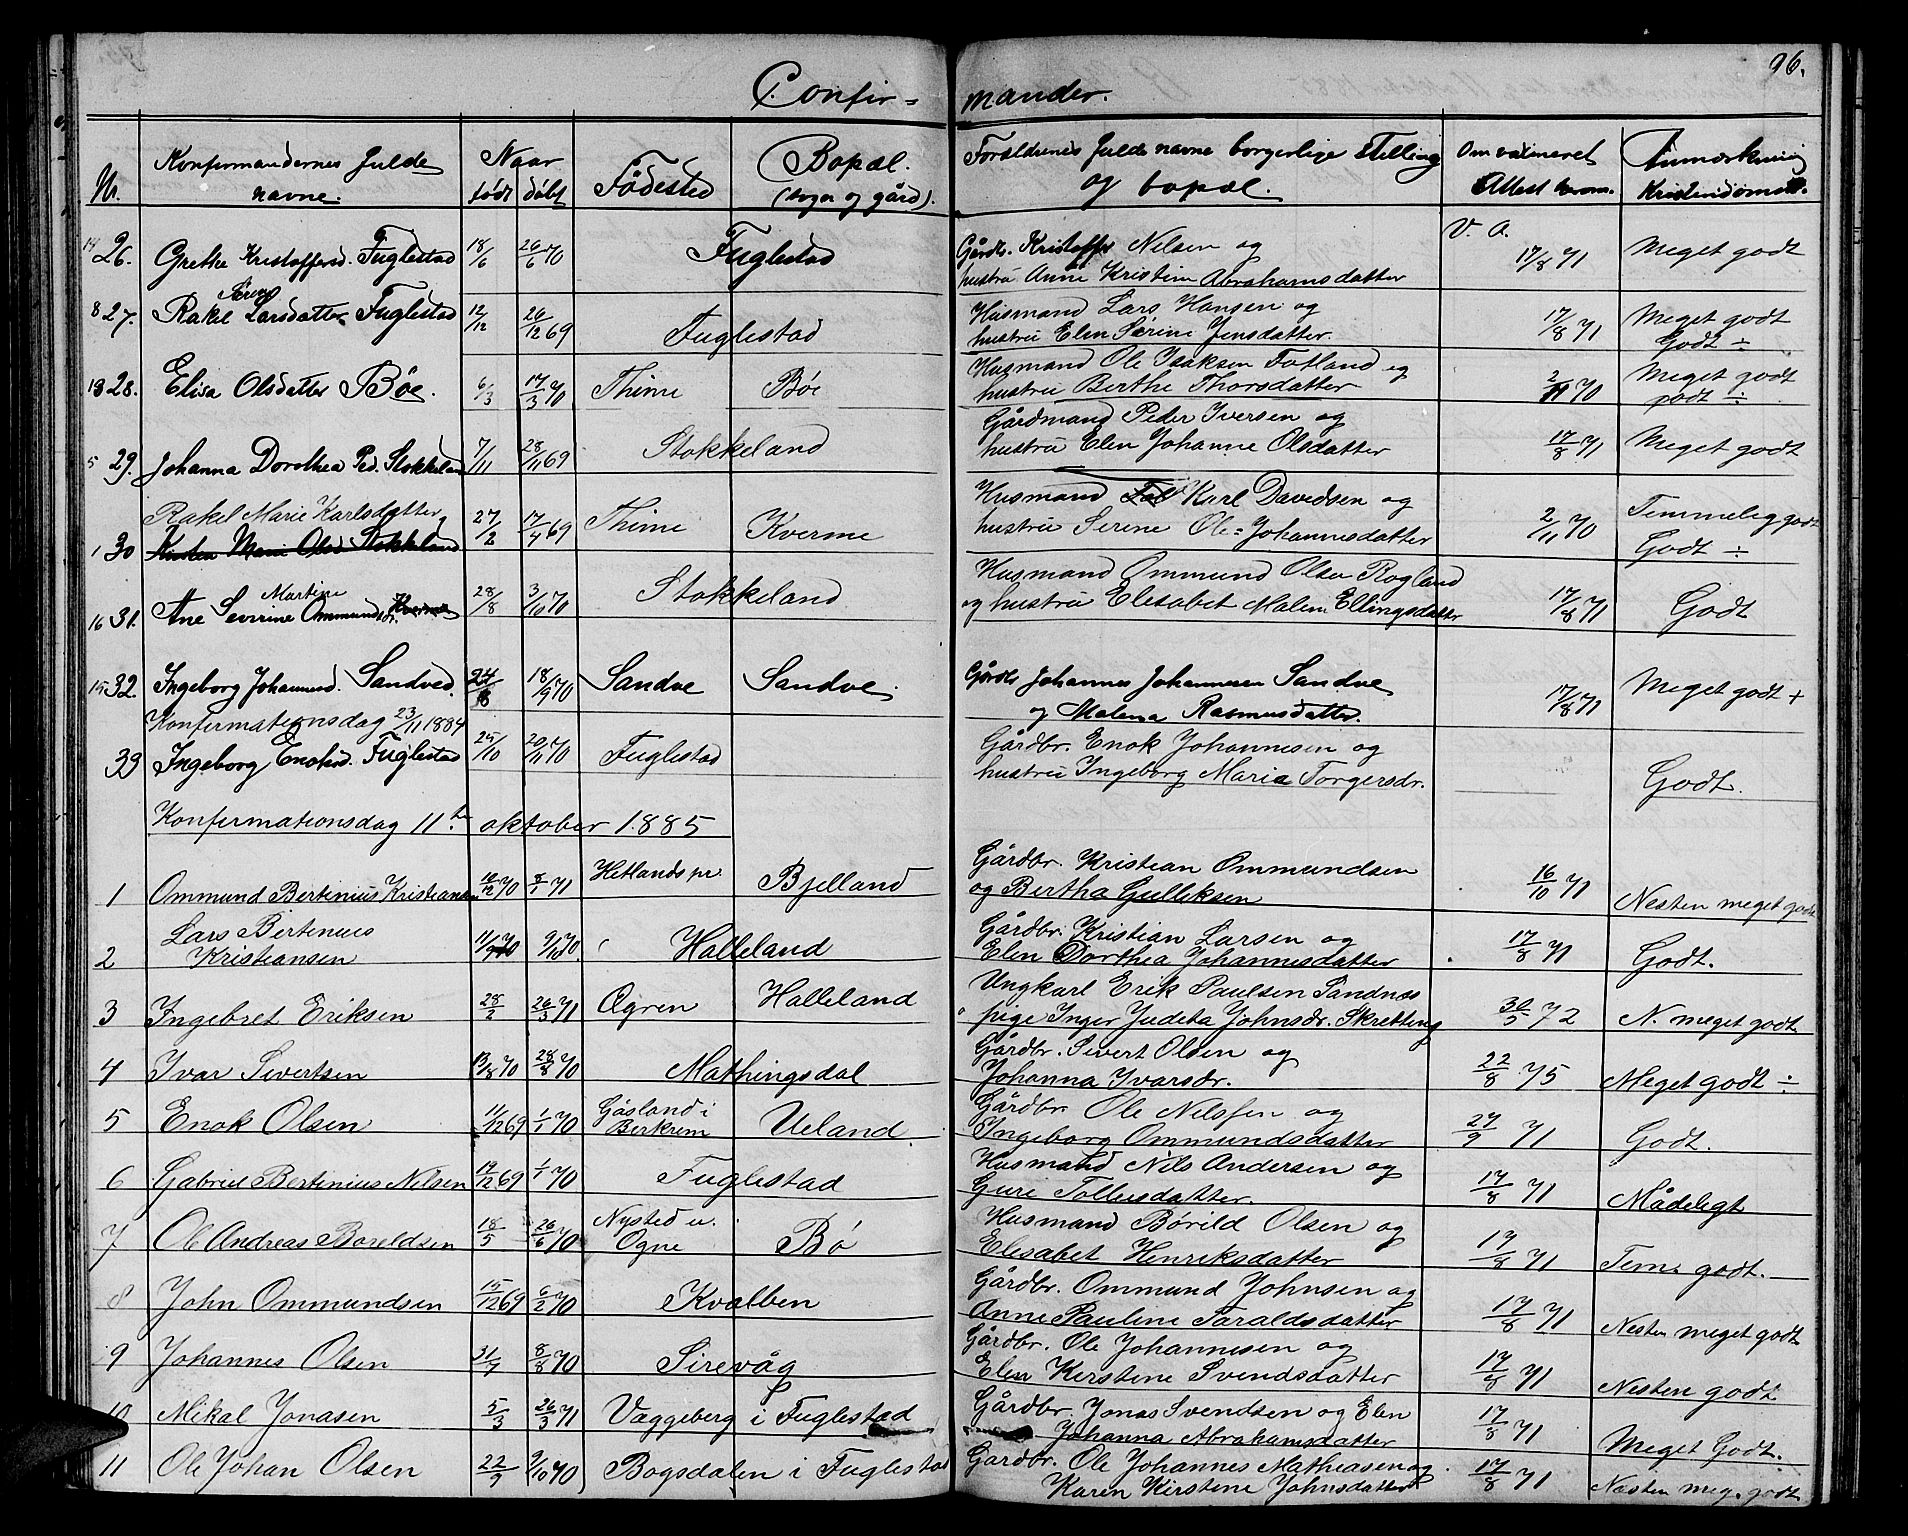 96.
Confir= mander.
Nr. Konfirmandernes fulde navne. Naar født døbt Fødested Bopæl. (sogn og gård). Forældrenes fulde navne borgerlige stilling og bopæl. Om vaccineret Attest herom. Anmærkning Kristendomsk.
14 26. Grethe Kristoffersd. Fuglestad 18/6 26/6 70 Fuglestad Gårdbr. Kristoffer Nilsen og V. A. 17/8 71 Meget godt
hustru Anne Kristine Abrahamsdatter
8 27. Rakel Serine Larsdatter Fuglestad 12/12 26/12 69 Fuglestad Husmand Lars Hansen og 17/8 71 Meget godt
hustru Elen Serine Jensdatter. Godt ÷
13 28. Elisa Olsdatter Bøe. 6/3 17/3 70 Thime Bøe Husmand Ole Isaksen Fotland og 2/11 70 Meget godt
hustru Berthe Thorsdatter godt ÷
5 29. Johanna Dorothea Ped. Stokkeland 7/11 28/11 69 Stokkeland Gårdmand Peder Iversen og 17/8 71 Meget godt
hustru Elen Johanne Olsdatter
Rakel Marie Karlsdatter 27/2 17/4 69 Thime Kverme Husmand Karl Davidsen og 2/11 70 Temmelig godt
1 30 Kirsten Marie Olsd Stokkeland hustru Serine Ole= Johannesdatter Godt ÷
16 31. Ane Sevirine Martine Ommundsdr. Kverme 28/8 3/10 70 Stokkeland Husmand Ommund Olsen Rogland 17/8 71 Godt
og hustru Elesabet Malene Ellingsdatter
15 32. Ingeborg Johannesd. Sandved. 24/8 18/9 70 Sandve Sandve. Gårdbr Johannes Johannesen Sandve 17/8 71 Meget godt +
og Malena Rasmusdatter.
Konfirmationsdag 23/11 1884
33 Ingeborg Enoksd. Fuglestad 25/10 20/11 70 Fuglestad Gårdbr. Enok Johannesen og Godt.
hustru Ingeborg Maria Torgersdr.
Konfirmationsdag 11te oktober 1885
1 Ommund Bertinius Kristiansen 10/12 70 8/1 71 Hetlands pr. Bjelland Gårdbr. Kristian Ommundsen 16/10 71 Nesten meget godt
og Bertha Gulliksen
2 Lars Bertenius Kristiansen 11/9 70 9/10 70 Halleland Gårdbr. Kristian Larsen og 17/8 71 Godt.
Elen Dorthea Johannesdatter
3 Ingebret Eriksen 28/2 26/3 71 Ogren Halleland Ungkarl Erik Paulsen Sandnæs 30/5 72 N. meget godt
pige Inger Judeta Johnsdr. Skretting
4 Ivar Sivertsen 13/8 70 28/8 70 Mathingsdal Gårdbr. Sivert Olsen og 22/8 75 Meget godt ÷
Johanna Ivarsdr.
5 Enok Olsen 11/12 69 1/1 70 Gåsland i Berkrem Ueland. Gårdbr. Ole Nilssen og 27/9 71 Godt.
Ingeborg Ommundsdatter
6 Gabriel Bertinius Nilsen 17/12 69 1/1 70 Fuglestad Husmand Nils Andersen og 17/8 71 Mådeligt
Guri Tolleisdatter
7 Ole Andreas Boreldsen 18/5 26/6 70 Nysted u. Ogne Bø Husmand Børild Olsen og 17/8 71 Tem. godt.
Elesabet Henriksdatter
8 John Ommundsen 15/12 69 6/2 70 Kvalben Gårdbr. Ommund Johnsen og 17/8 71 Nesten meget godt
Anne Pauline Taraldsdatter
9 Johannes Olsen 31/7 8/8 70 Sirevåg Gårdbr. Ole Johannesen og 17/8 71 Nesten godt
Elen Kerstene Svendsdatter
10 Mikal Jonasen 5/3 26/3 71 Vaggeberg i Fuglestad Gårdbr. Jonas Svendsen og Elen 17/8 71 Meget Godt.
Johanna Abrahamsdatter
11 Ole Johan Olsen 22/9 9/10 70 Bogsdalen i Fuglestad Gårdbr. Ole Johannes Mathiasen og 17/8 71 Næsten meg. godt
Karen Kirstene Johnsdatter